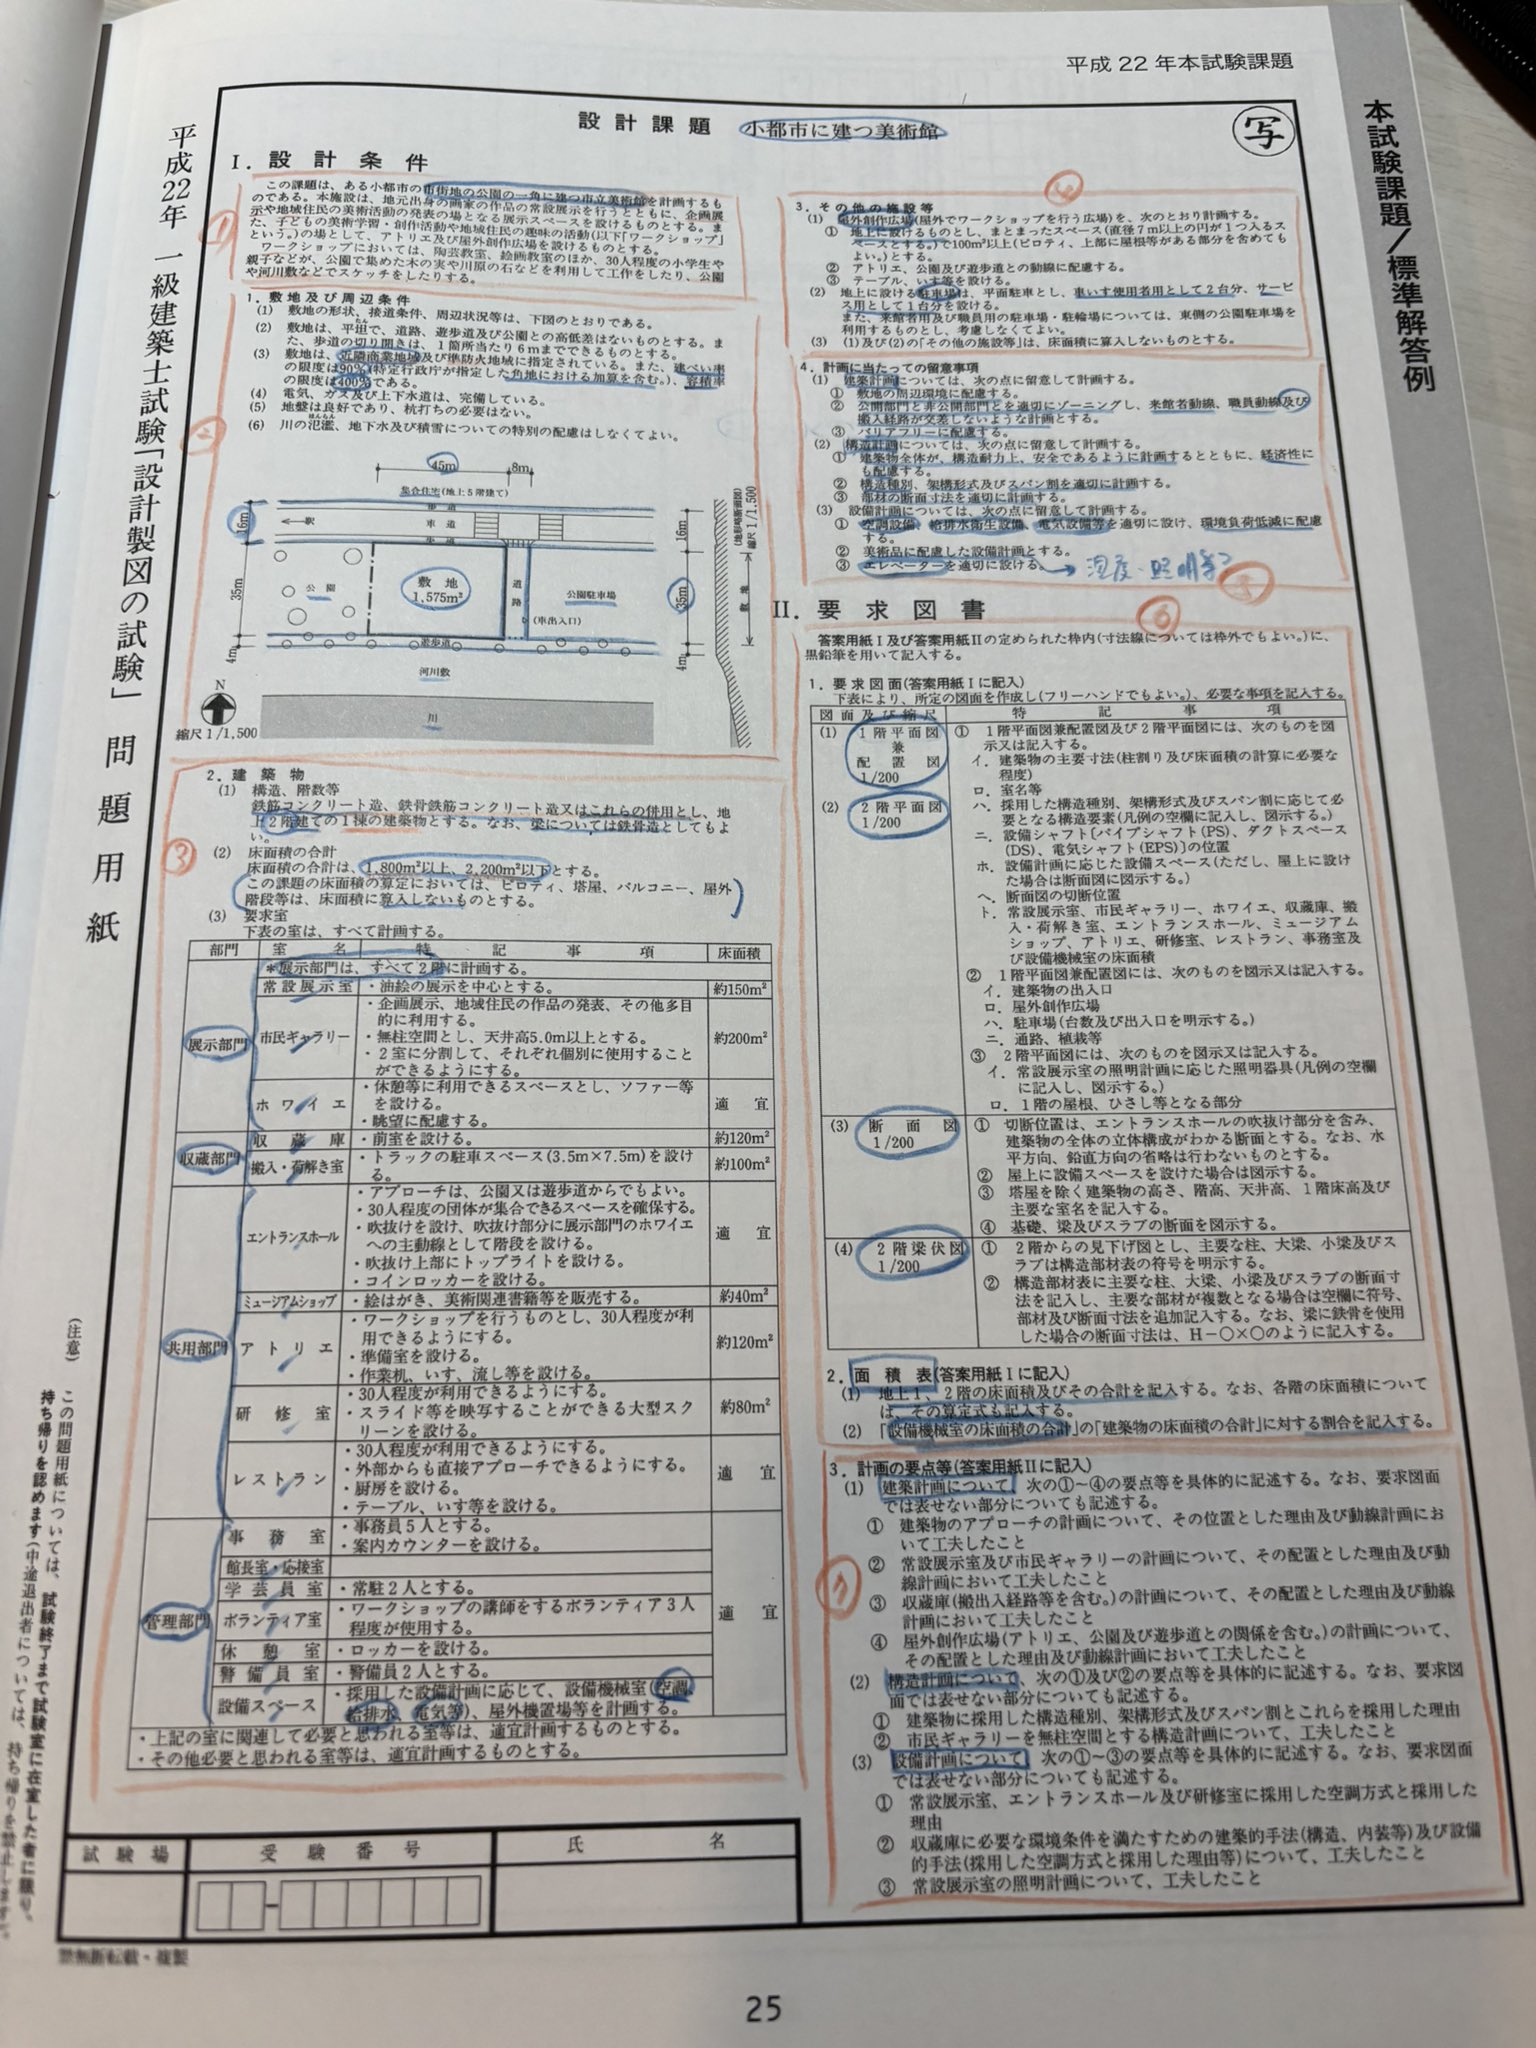 平成22年本試験課題
本試験課題/標準解答例
平成22年 一級建築士試験「設計製図の試験」問題用紙
設計課題 小都市に建つ美術館
写
I.設計条件
この課題は、ある小都市の市街地の公園の一角に建つ市立美術館を計画するも
のである。本施設は、地元出身の画家の作品の常設展示を行うとともに、企画展
示や地域住民の美術活動の発表の場となる展示スペースを設けるものとする。ま
た、子どもの美術学習・創作活動や地域住民の趣味の活動(以下「ワークショップ」
という。)の場として、アトリエ及び屋外創作広場を設けるものとする。
ワークショップにおいては、陶芸教室、絵画教室のほか、30人程度の小学生や
親子などが、公園で集めた木の実や川原の石などを利用して工作をしたり、公園
や河川敷などでスケッチをしたりする。
①
1.敷地及び周辺条件
(1) 敷地の形状、接道条件、周辺状況等は、下図のとおりである。
(2) 敷地は、平坦で、道路、遊歩道及び公園との高低差はないものとする。ま
た、歩道の切り開きは、1箇所当たり6mまでできるものとする。
(3) 敷地は、近隣商業地域及び準防火地域に指定されている。また、建ぺい率
の限度は90%(特定行政庁が指定した角地における加算を含む。)、容積率
の限度は400%である。
(4) 電気、ガス及び上下水道は、完備している。
(5) 地盤は良好であり、杭打ちの必要はない。
(6) 川の氾濫、地下水及び積雪についての特別の配慮はしなくてよい。
②
45m 8m
集合住宅(地上5階建て)
歩道
16m 駅 車道 16m
歩道
35m 公園 敷地 道路 公園駐車場 35m
1,575m²
(車出入口)
遊歩道
4m 4m
河川敷
川
N
縮尺1/1,500
敷地
(地形略断面図)
縮尺1/1,500
2.建築物
(1) 構造、階数等
鉄筋コンクリート造、鉄骨鉄筋コンクリート造又はこれらの併用とし、地
上2階建ての1棟の建築物とする。なお、梁については鉄骨造としてもよ
い。
③
(2) 床面積の合計
床面積の合計は、1,800m²以上、2,200m²以下とする。
この課題の床面積の算定においては、ピロティ、塔屋、バルコニー、屋外
階段等は、床面積に算入しないものとする。
(3) 要求室
下表の室は、すべて計画する。
部門 室名 特記事項 床面積
展示部門
*展示部門は、すべて2階に計画する。
常設展示室 ・油絵の展示を中心とする。 約150m²
市民ギャラリー ・企画展示、地域住民の作品の発表、その他多目
的に利用する。
・無柱空間とし、天井高5.0m以上とする。 約200m²
・2室に分割して、それぞれ個別に使用すること
ができるようにする。
ホワイエ ・休憩等に利用できるスペースとし、ソファー等
を設ける。
・眺望に配慮する。 適宜
収蔵部門
収蔵庫 ・前室を設ける。 約120m²
搬入・荷解き室 ・トラックの駐車スペース(3.5m×7.5m)を設け
る。 約100m²
共用部門
エントランスホール ・アプローチは、公園又は遊歩道からでもよい。
・30人程度の団体が集合できるスペースを確保する。
・吹抜けを設け、吹抜け部分に展示部門のホワイエ
への主動線として階段を設ける。 適宜
・吹抜け上部にトップライトを設ける。
・コインロッカーを設ける。
ミュージアムショップ ・絵はがき、美術関連書籍等を販売する。 約40m²
アトリエ ・ワークショップを行うものとし、30人程度が利
用できるようにする。
・準備室を設ける。 約120m²
・作業机、いす、流し等を設ける。
研修室 ・30人程度が利用できるようにする。
・スライド等を映写することができる大型スク
リーンを設ける。 約80m²
レストラン ・30人程度が利用できるようにする。
・外部からも直接アプローチできるようにする。
・厨房を設ける。 適宜
・テーブル、いす等を設ける。
管理部門
事務室 ・事務員5人とする。
・案内カウンターを設ける。
館長室・応接室
学芸員室 ・常駐2人とする。
ボランティア室 ・ワークショップの講師をするボランティア3人
程度が使用する。 適宜
休憩室 ・ロッカーを設ける。
警備員室 ・警備員2人とする。
設備スペース ・採用した設備計画に応じて、設備機械室(空調、
給排水、電気等)、屋外機置場等を計画する。
・上記の室に関連して必要と思われる室等は、適宜計画するものとする。
・その他必要と思われる室等は、適宜計画するものとする。
④
3.その他の施設等
(1) 屋外創作広場(屋外でワークショップを行う広場)を、次のとおり計画する。
① 地上に設けるものとし、まとまったスペース(直径7m以上の円が1つ入るス
ペースとする。)で100m²以上(ピロティ、上部に屋根等がある部分を含めても
よい。)とする。
② アトリエ、公園及び遊歩道との動線に配慮する。
③ テーブル、いす等を設ける。
(2) 地上に設ける駐車場は、平面駐車とし、車いす使用者用として2台分、サービ
ス用として1台分を設ける。
また、来館者用及び職員用の駐車場・駐輪場については、東側の公園駐車場を
利用するものとし、考慮しなくてよい。
(3) (1)及び(2)の「その他の施設等」は、床面積に算入しないものとする。
4.計画に当たっての留意事項
(1) 建築計画については、次の点に留意して計画する。
① 敷地の周辺環境に配慮する。
② 公開部門と非公開部門とを適切にゾーニングし、来館者動線、職員動線及び
搬入経路が交差しないような計画とする。
③ バリアフリーに配慮する。
(2) 構造計画については、次の点に留意して計画する。
① 建築物全体が、構造耐力上、安全であるように計画するとともに、経済性に
も配慮する。
② 構造種別、架構形式及びスパン割を適切に計画する。
③ 部材の断面寸法を適切に計画する。
(3) 設備計画については、次の点に留意して計画する。
① 空調設備、給排水衛生設備、電気設備等を適切に設け、環境負荷低減に配慮
する。
② 美術品に配慮した設備計画とする。
③ エレベーターを適切に設ける。 → 湿度・照明等?
⑤
II.要求図書
⑥
答案用紙Ⅰ及び答案用紙Ⅱの定められた枠内(寸法線については枠外でもよい。)に、
黒鉛筆を用いて記入する。
1.要求図面(答案用紙Ⅰに記入)
下表により、所定の図面を作成し(フリーハンドでもよい。)、必要な事項を記入する。
図面及び縮尺 特記事項
(1) 1階平面図
兼
配置図
1/200
(2) 2階平面図
1/200
① 1階平面図兼配置図及び2階平面図には、次のものを図
示又は記入する。
イ.建築物の主要寸法(柱割り及び床面積の計算に必要な
程度)
ロ.室名等
ハ.採用した構造種別、架構形式及びスパン割に応じて必
要となる構造要素(凡例の空欄に記入し、図示する。)
ニ.設備シャフト[パイプシャフト(PS)、ダクトスペース
(DS)、電気シャフト(EPS)]の位置
ホ.設備計画に応じた設備スペース(ただし、屋上に設け
た場合は断面図に図示する。)
ヘ.断面図の切断位置
ト.常設展示室、市民ギャラリー、ホワイエ、収蔵庫、搬
入・荷解き室、エントランスホール、ミュージアム
ショップ、アトリエ、研修室、レストラン、事務室及
び設備機械室の床面積
② 1階平面図兼配置図には、次のものを図示又は記入する。
イ.建築物の出入口
ロ.屋外創作広場
ハ.駐車場(台数及び出入口を明示する。)
ニ.通路、植栽等
③ 2階平面図には、次のものを図示又は記入する。
イ.常設展示室の照明計画に応じた照明器具(凡例の空欄
に記入し、図示する。)
ロ.1階の屋根、ひさし等となる部分
(3) 断面図
1/200
① 切断位置は、エントランスホールの吹抜け部分を含み、
建築物の全体の立体構成がわかる断面とする。なお、水
平方向、鉛直方向の省略は行わないものとする。
② 屋上に設備スペースを設けた場合は図示する。
③ 塔屋を除く建築物の高さ、階高、天井高、1階床高及び
主要な室名を記入する。
④ 基礎、梁及びスラブの断面を図示する。
(4) 2階梁伏図
1/200
① 2階からの見下げ図とし、主要な柱、大梁、小梁及びス
ラブは構造部材表の符号を明示する。
② 構造部材表に主要な柱、大梁、小梁及びスラブの断面寸
法を記入し、主要な部材が複数となる場合は空欄に符号、
部材及び断面寸法を追加記入する。なお、梁に鉄骨を使用
した場合の断面寸法は、H-○×○のように記入する。
2.面積表(答案用紙Ⅰに記入)
(1) 地上1、2階の床面積及びその合計を記入する。なお、各階の床面積について
は、その算定式も記入する。
(2) 「設備機械室の床面積の合計」の「建築物の床面積の合計」に対する割合を記入する。
3.計画の要点等(答案用紙Ⅱに記入)
(1) 建築計画について、次の①~④の要点等を具体的に記述する。なお、要求図面
では表せない部分についても記述する。
① 建築物のアプローチの計画について、その位置とした理由及び動線計画にお
いて工夫したこと
② 常設展示室及び市民ギャラリーの計画について、その配置とした理由及び動
線計画において工夫したこと
⑦
③ 収蔵庫(搬出入経路等を含む。)の計画について、その配置とした理由及び動線
計画において工夫したこと
④ 屋外創作広場(アトリエ、公園及び遊歩道との関係を含む。)の計画について、
その配置とした理由及び動線計画において工夫したこと
(2) 構造計画について、次の①及び②の要点等を具体的に記述する。なお、要求図
面では表せない部分についても記述する。
① 建築物に採用した構造種別、架構形式及びスパン割とこれらを採用した理由
② 市民ギャラリーを無柱空間とする構造計画について、工夫したこと
(3) 設備計画について、次の①~③の要点等を具体的に記述する。なお、要求図面
では表せない部分についても記述する。
① 常設展示室、エントランスホール及び研修室に採用した空調方式と採用した
理由
② 収蔵庫に必要な環境条件を満たすための建築的手法(構造、内装等)及び設備
的手法(採用した空調方式と採用した理由等)について、工夫したこと
③ 常設展示室の照明計画について、工夫したこと
(注意) この問題用紙については、試験終了まで試験室に在室した者に限り、
持ち帰りを認めます(中途退出者については、持ち帰りを禁止します)。
試験場 受験番号 氏名
禁無断転載・複製
25